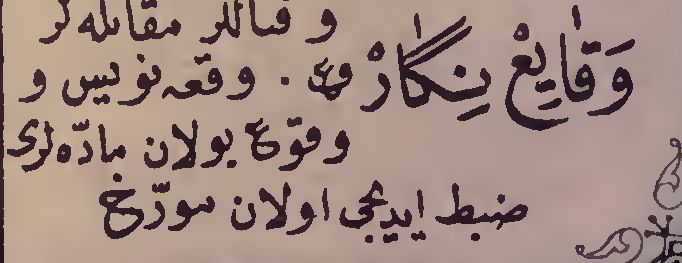 و قتاللر مقابله لر
وَقَايِعْ نِكَارْ فع . وقعه نويس و
وقوع بولان مادّه لرى
ضبط ايديجى اولان مورّخ